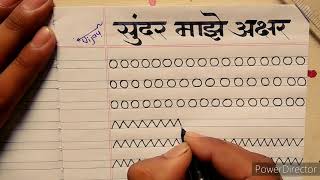 सुंदर माझे अक्षर
Vijay
PowerDirector